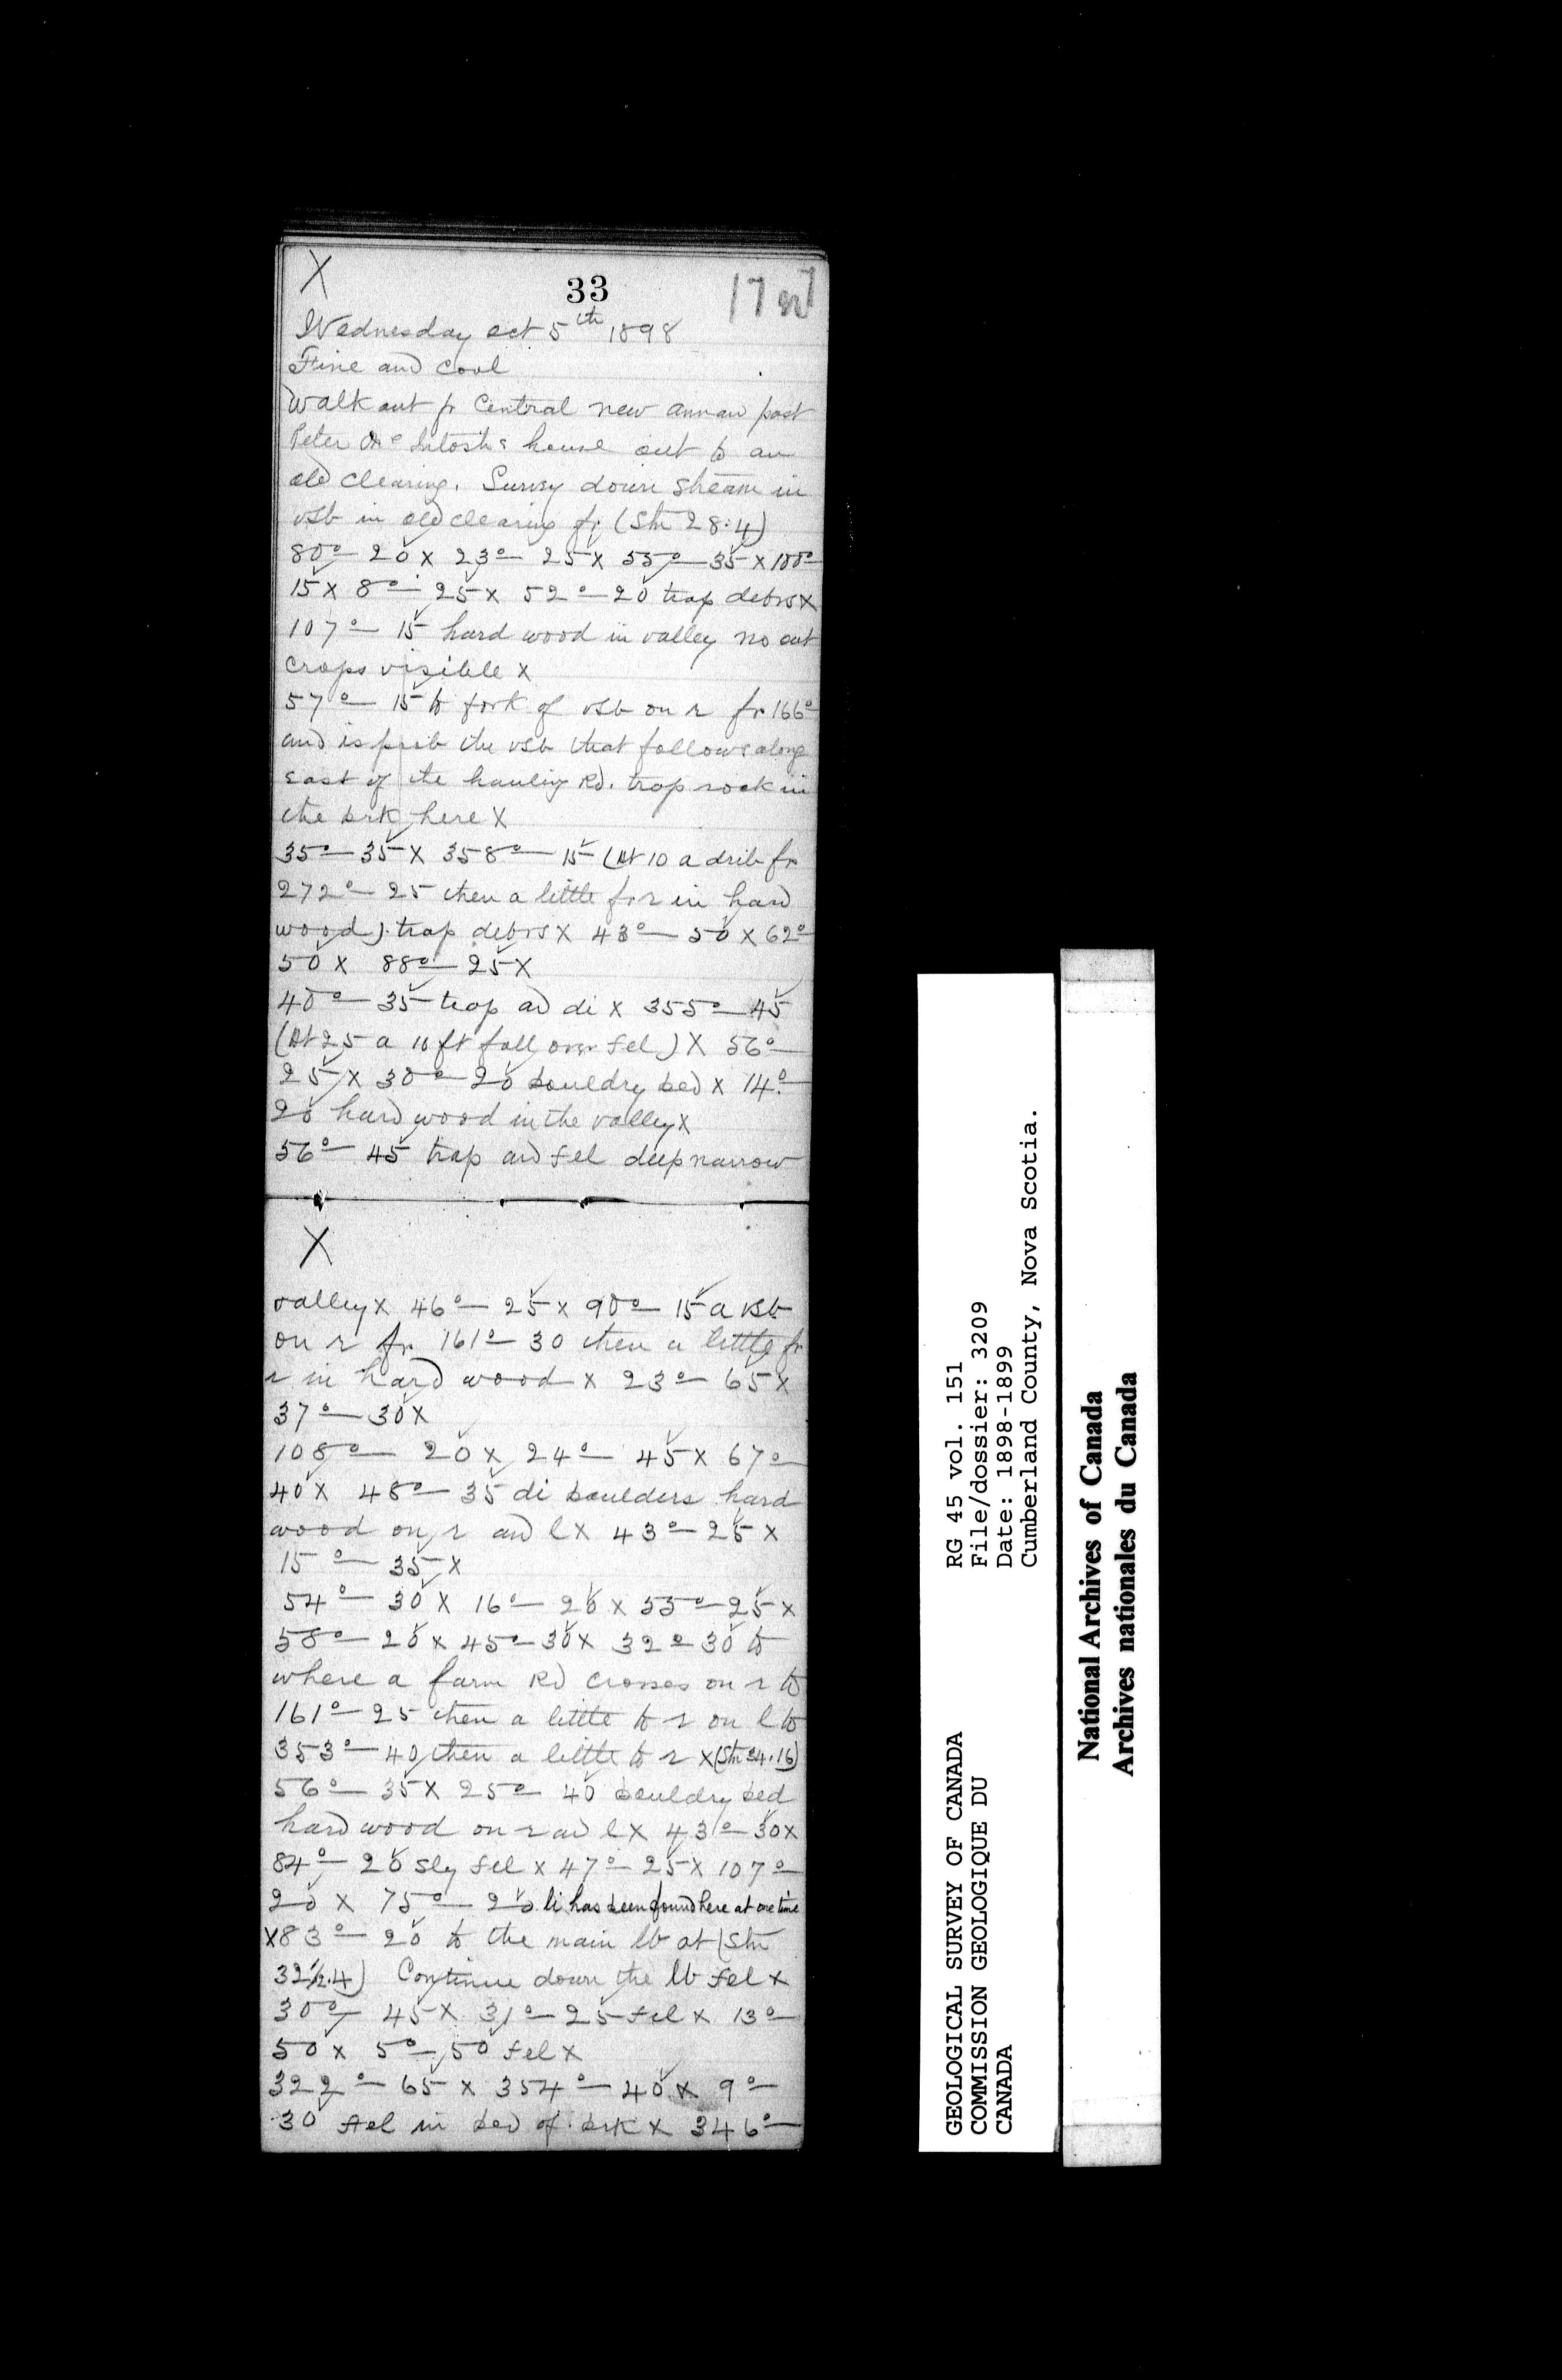 X
33
17
Wednesday oct 5th 1898
Fine and cool
Walk out fr Central new annan past
Peter McIntosh's house out to an
old clearing. Survey down stream in
vsb in old clearing fr (Stn 28.4)
80°— 20 X 23°— 25 X 55°— 35 X 100°—
15 X 8°— 25 X 52°— 20 trap debrs X
107°— 15 hard wood in valley no out
crops visible X
57°— 15 to fork of vsb on r fr 166°
and is prob the vsb that follows along
east of the hauling Rd. trap rock in
the brk here X
35°— 35 X 358°— 15 (At 10 a drib fr
272°— 25 then a little fr r in hard
wood) trap debrs X 43°— 50 X 62°—
50 X 88°— 25 X
40°— 35 trap and di X 355°— 45
(At 25 a 10 ft fall over fel) X 56°—
25 X 30°— 20 bouldry bed X 14°—
20 hard wood in the valley X
56°— 45 trap and fel deep narrow
X
valley X 46°— 25 X 90°— 15 a vsb
on r fr 161°— 30 then a little fr
r in hard wood X 23°— 65 X
37°— 30 X
108°— 20 X 24°— 45 X 67°—
40 X 48°— 35 di boulders hard
wood on r and l X 43°— 25 X
15°— 35 X
54°— 30 X 16°— 20 X 55°— 25 X
58°— 20 X 45°— 30 X 32°— 30 to
where a farm Rd crosses on r to
161°— 25 then a little to r on l to
353°— 40 then a little to r X (Stn 34.16)
56°— 35 X 25°— 40 bouldry bed
hard wood on r and l X 43°— 30 X
84°— 20 sly fel X 47°— 25 X 107°—
20 X 75°— 20 li has been found here at one time
X 83°— 20 to the main lb at (Stn
32½.4) Continue down the lb fel X
30°— 45 X 31°— 25 fel X 13°—
50 X 5°— 50 fel X
322°— 65 X 354°— 40 X 9°—
30 fel in bed of brk X 346°—
GEOLOGICAL SURVEY OF CANADA
COMMISSION GEOLOGIQUE DU
CANADA
RG 45 vol. 151
File/dossier: 3209
Date: 1898-1899
Cumberland County, Nova Scotia.
National Archives of Canada
Archives nationales du Canada